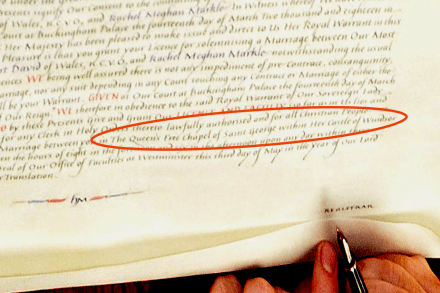 under the
equity for Our Consent to the
of Wales, K.C.V.O., and Rachel Meghan Markle. In Witness whereof We
Court at Buckingham Palace the fourteenth day of March Two thousand and eighteen in
Her Majesty has been pleased to make issue and direct to Us Her Royal Warrant in this
Pleasure is that you grant your Licence for solemnising a Marriage between Our Most
David of Wales, K.C.V.O., and Rachel Meghan Markle notwithstanding the usual
WE being well assured there is not any impediment of pre-contract, consanguinity,
nor any suit depending in any Court touching any Contract or Marriage of either the
ll be your Warrant. GIVEN at Our Court at Buckingham Palace the fourteenth day of March
of Our Reign. WE therefore in obedience to the said Royal Warrant of Our Sovereign Lady
by these Presents Give and Grant Our as far as in Us lies and
any Clerk in Holy Orders thereto lawfully authorised and for all Christian People
Marriage between you in The Queen's Free Chapel of Saint George within Her Castle of Windsor
the hours of eight in the in the afternoon upon any day within three
ral of Our Office of Faculties at Westminster this third day of May in the year of Our Lord
Translation.
REGISTRAR